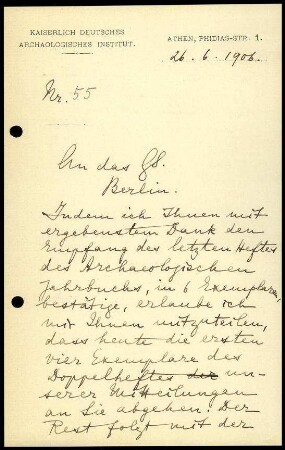 KAISERLICH DEUTSCHES
ARCHAEOLOGISCHES INSTITUT.
ATHEN, PHIDIAS-STR. 1.
26. 6. 1906.
Nr. 55
An das GS.
Berlin.
Indem ich Ihnen mit
ergebenstem Dank den
Empfang des letzten Heftes
des Archaeologischen
Jahrbuchs, in 6 Exemplaren,
bestätige, erlaube ich
mir Ihnen mitzuteilen,
dass heute die ersten
vier Exemplare des
Doppelheftes der un-
serer Mitteilungen
an Sie abgehen. Der
Rest folgt mit der